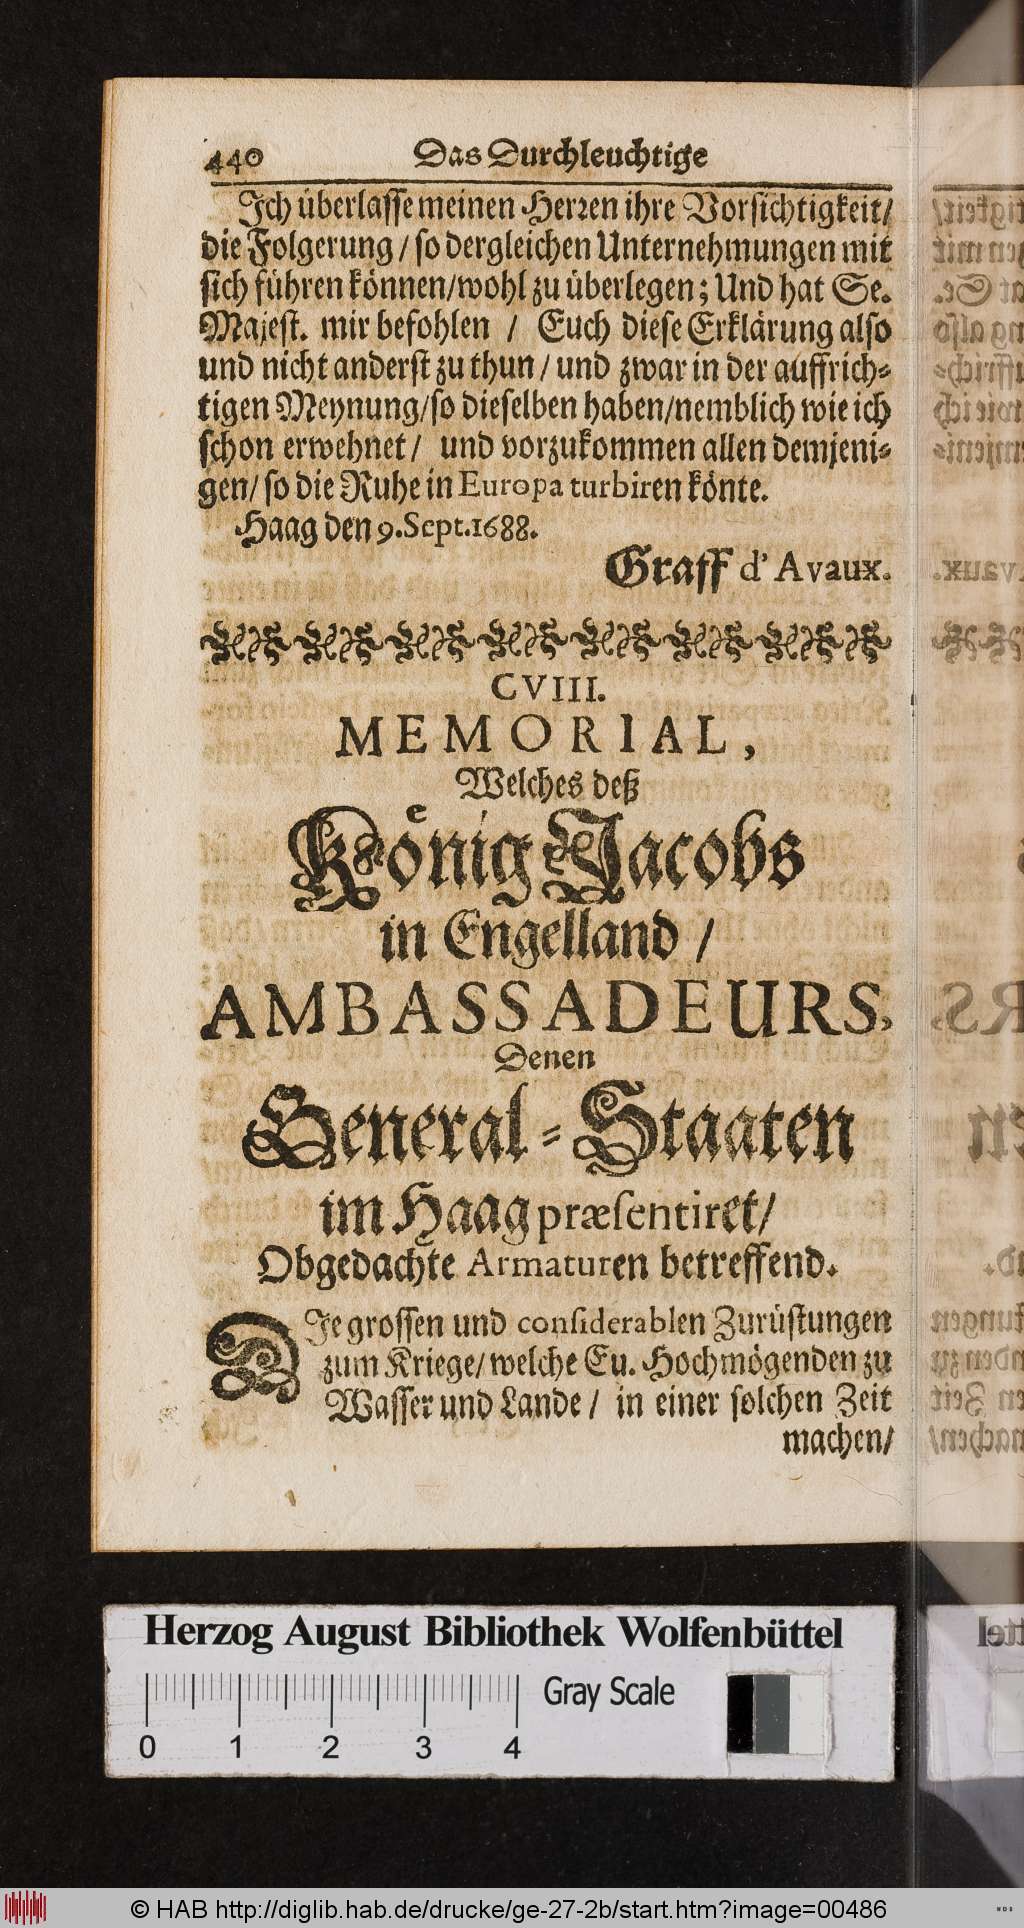 440 Das Durchleuchtige
Ich überlasse meinen Herren ihre Vorsichtigkeit/
die Folgerung / so dergleichen Unternehmungen mit
sich führen können/wohl zu überlegen; Und hat Se.
Majest. mir befohlen / Euch diese Erklärung also
und nicht anderst zu thun / und zwar in der auffrich-
tigen Meynung/so dieselben haben/nemblich wie ich
schon erwehnet / und vorzukommen allen demjeni-
gen/ so die Ruhe in Europa turbiren könte.
Haag den 9. Sept. 1688.
Graff d' Avaux.
CVIII.
MEMORIAL,
Welches deß
König Jacobs
in Engelland /
AMBASSADEURS,
Denen
General-Staaten
im Haag præsentiret/
Obgedachte Armaturen betreffend.
DIe grossen und considerablen Zurüstungen
zum Kriege/ welche Eu. Hochmögenden zu
Wasser und Lande / in einer solchen Zeit
machen/
Herzog August Bibliothek Wolfenbüttel
Gray Scale
0 1 2 3 4
© HAB http://diglib.hab.de/drucke/ge-27-2b/start.htm?image=00486